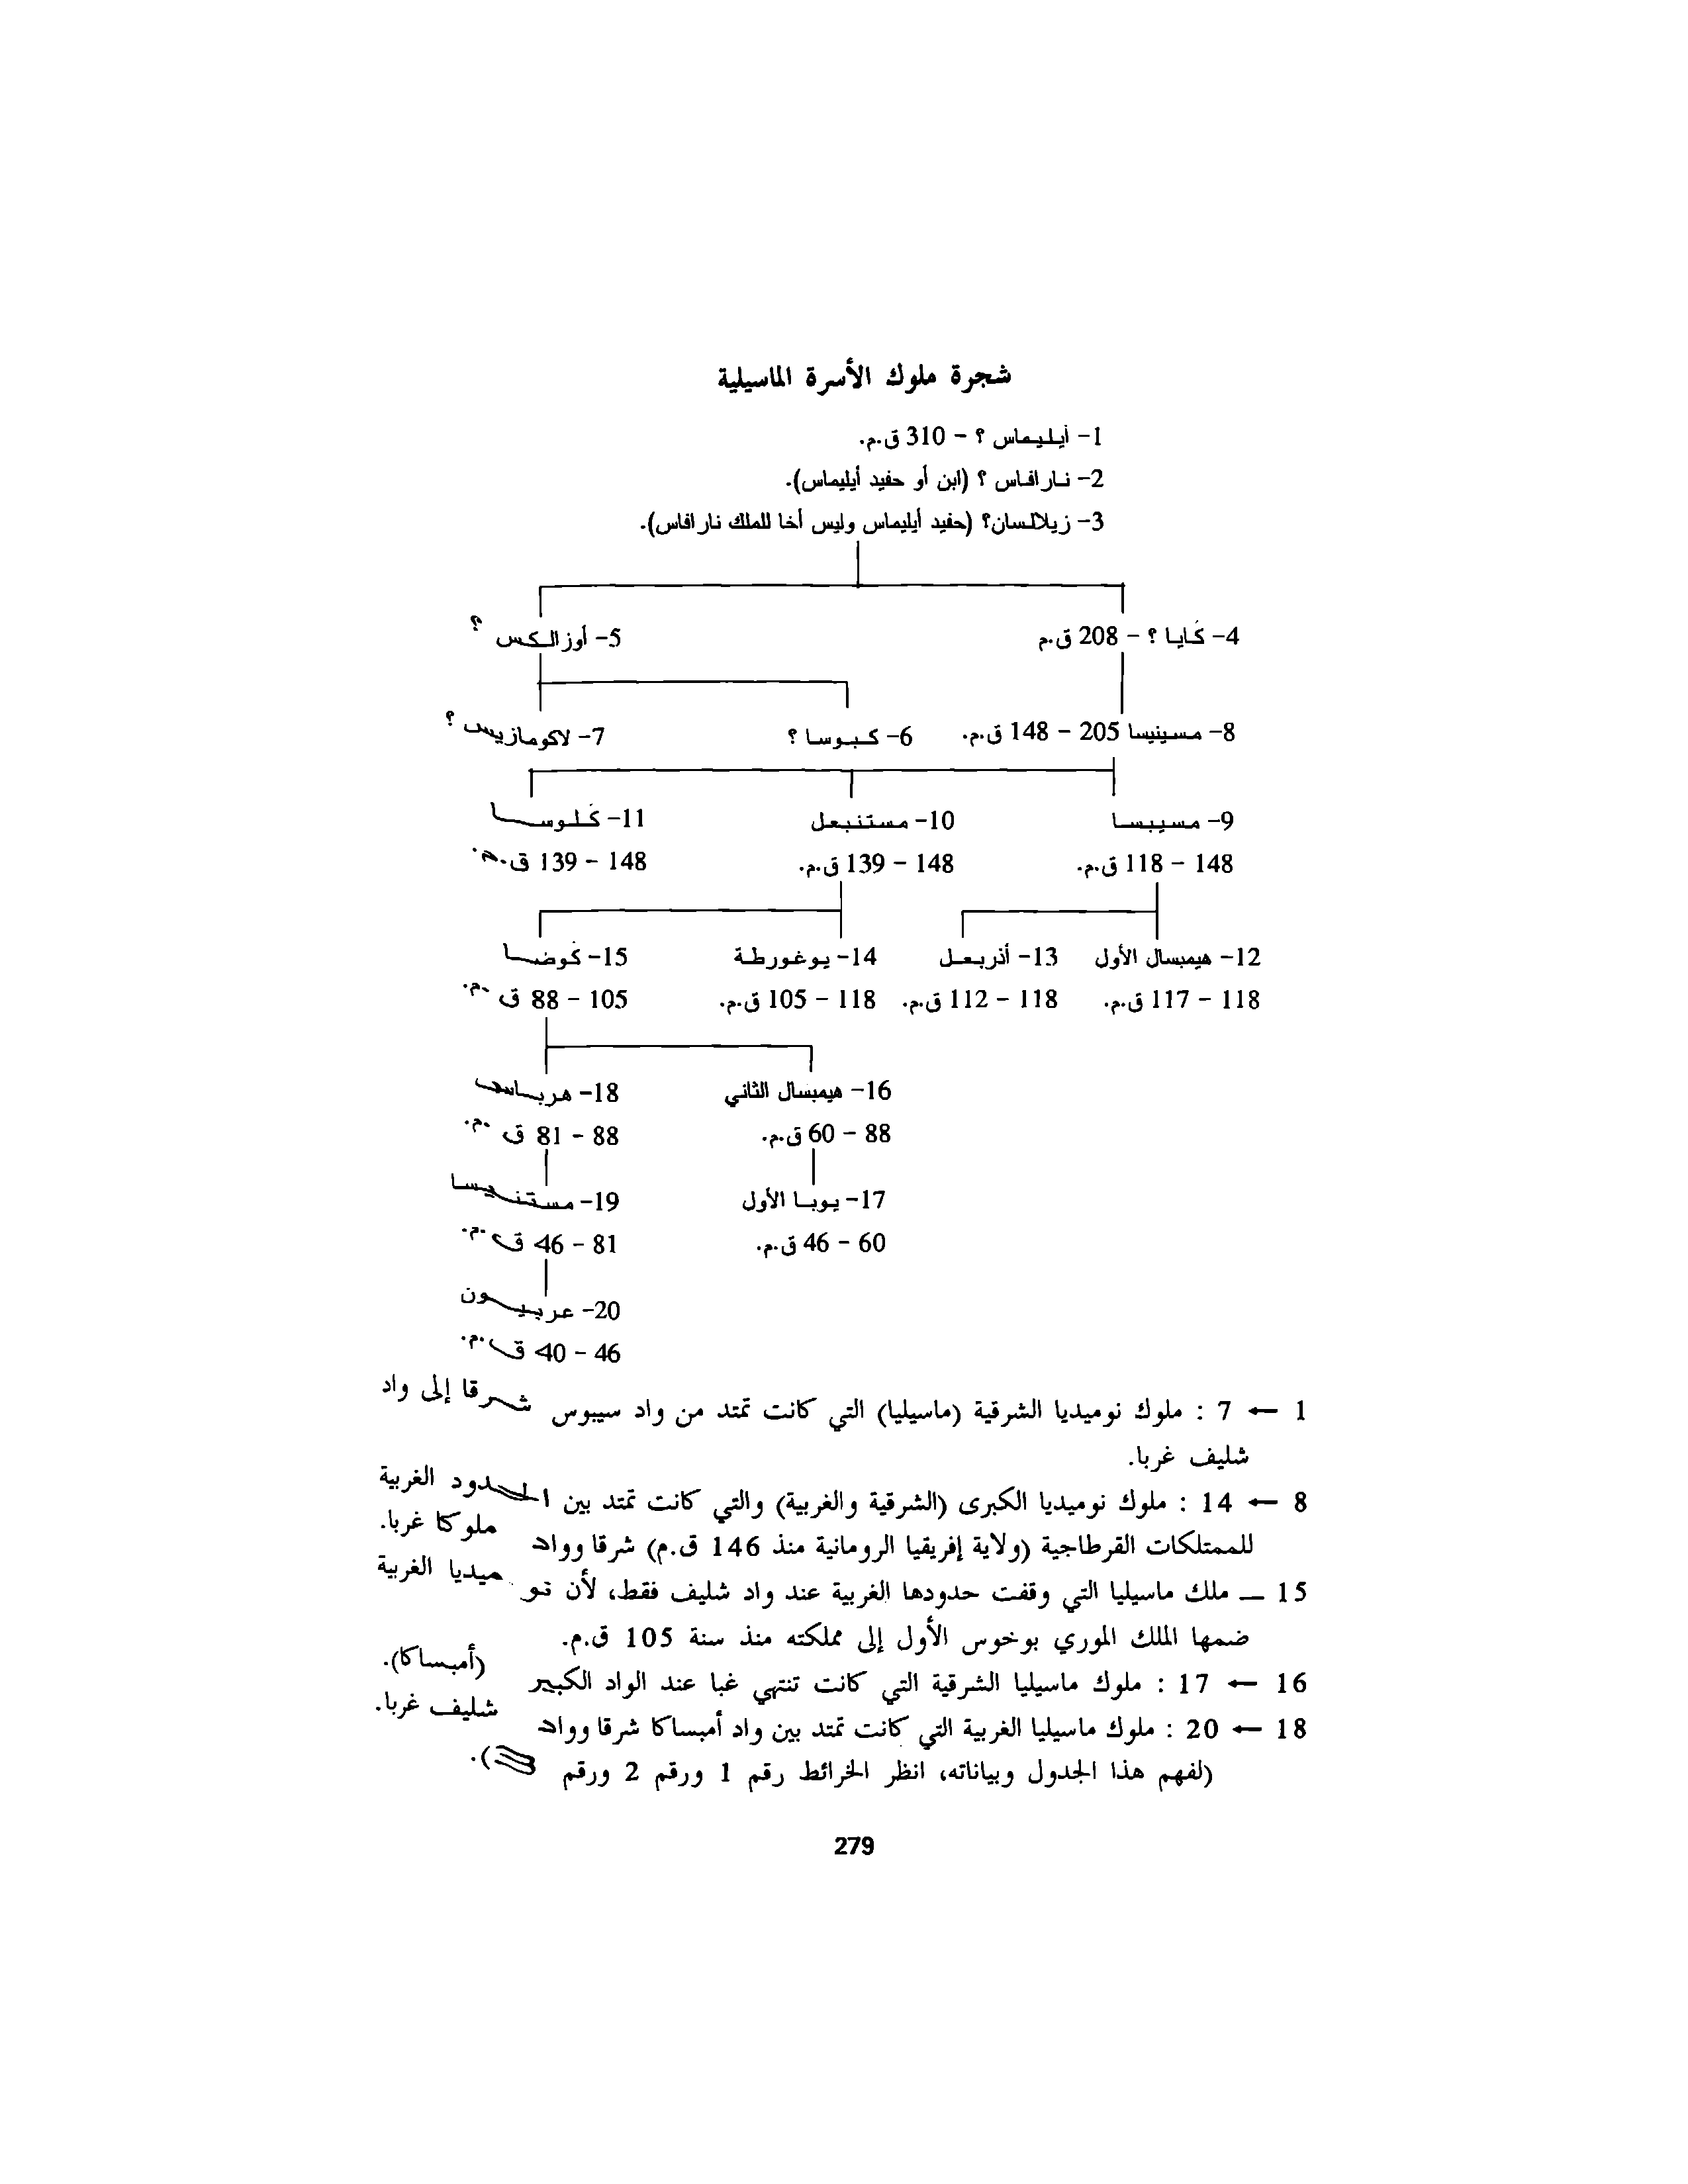 شجرة ملوك الأسرة الماسيلية
1- أيليماس ؟ - 310 ق.م.
2- نارافاس ؟ (ابن أو حفيد أيليماس).
3- زيلالسان؟ (حفيد أيليماس وليس أخا للملك نارافاس).
4- كَايا ؟ - 208 ق.م
5- أوزالكس ؟
8- مسينيسا 205 - 148 ق.م.
6- كبوسا ؟
7- لاكومازيس ؟
9- مسيبسا
10- مستنبعل
11- كَلوسا
148 - 118 ق.م.
148 - 139 ق.م.
148 - 139 ق.م.
12- هيمبسال الأول
13- أذربعل
14- يوغورطة
15- كَوضا
118 - 117 ق.م.
118 - 112 ق.م.
118 - 105 ق.م.
105 - 88 ق.م.
16- هيمبسال الثاني
18- هرباس
88 - 60 ق.م.
88 - 81 ق.م.
17- يوبا الأول
19- مستنيسا
60 - 46 ق.م.
81 - 46 ق.م.
20- عربيون
46 - 40 ق.م.
1 ← 7 : ملوك نوميديا الشرقية (ماسيليا) التي كانت تمتد من واد سيبوس شرقا إلى واد
شليف غربا.
8 ← 14 : ملوك نوميديا الكبرى (الشرقية والغربية) والتي كانت تمتد بين الحدود الغربية
للممتلكات القرطاجية (ولاية إفريقيا الرومانية منذ 146 ق.م) شرقا وواد ملوكا غربا.
15 ــ ملك ماسيليا التي وقفت حدودها الغربية عند واد شليف فقط، لأن نوميديا الغربية
ضمها الملك الموري بوخوس الأول إلى مملكته منذ سنة 105 ق.م.
16 ← 17 : ملوك ماسيليا الشرقية التي كانت تنتهي غبا عند الواد الكبير (أمبساكا).
18 ← 20 : ملوك ماسيليا الغربية التي كانت تمتد بين واد أمبساكا شرقا وواد شليف غربا.
(لفهم هذا الجدول وبياناته، انظر الخرائط رقم 1 ورقم 2 ورقم 3).
279